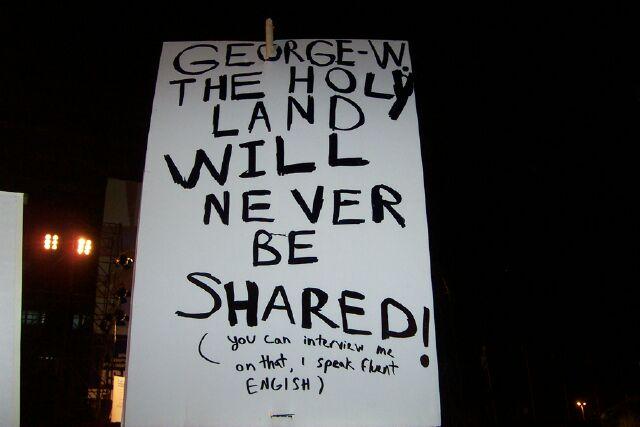 GEORGE-W.
THE HOLY
LAND
WILL
NEVER
BE
SHARED!
(you can interview me
on that, I speak fluent
ENGISH)